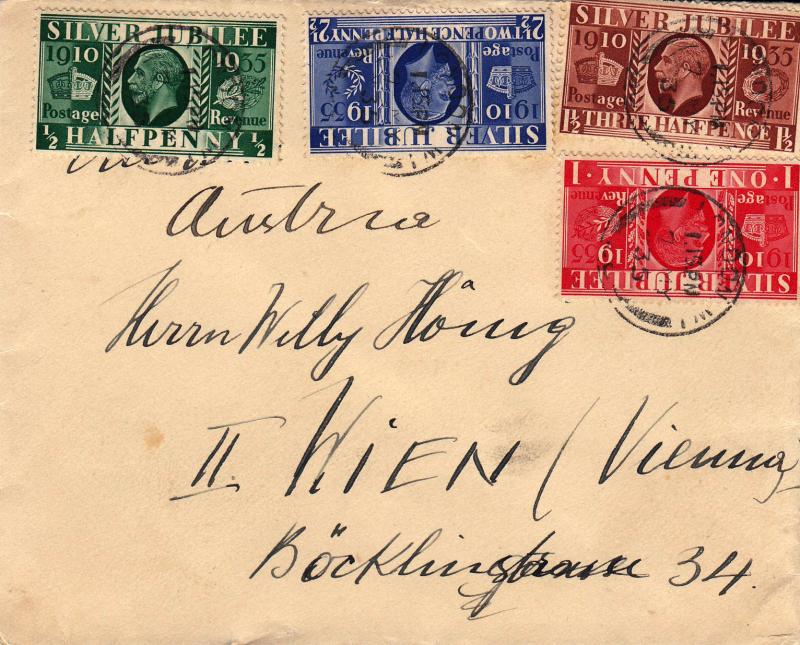 SILVER JUBILEE
1910 1935
Postage Revenue
½ HALFPENNY ½
SILVER JUBILEE
1910 1935
Postage Revenue
2½ TWOPENCE HALFPENNY 2½
SILVER JUBILEE
1910 1935
Postage Revenue
THREE HALFPENCE 1½
SILVER JUBILEE
1910 1935
Postage Revenue
1 ONE PENNY 1
Austria
Herrn Willy Hönig
II. WIEN (Vienna)
Böcklinstrasse 34.